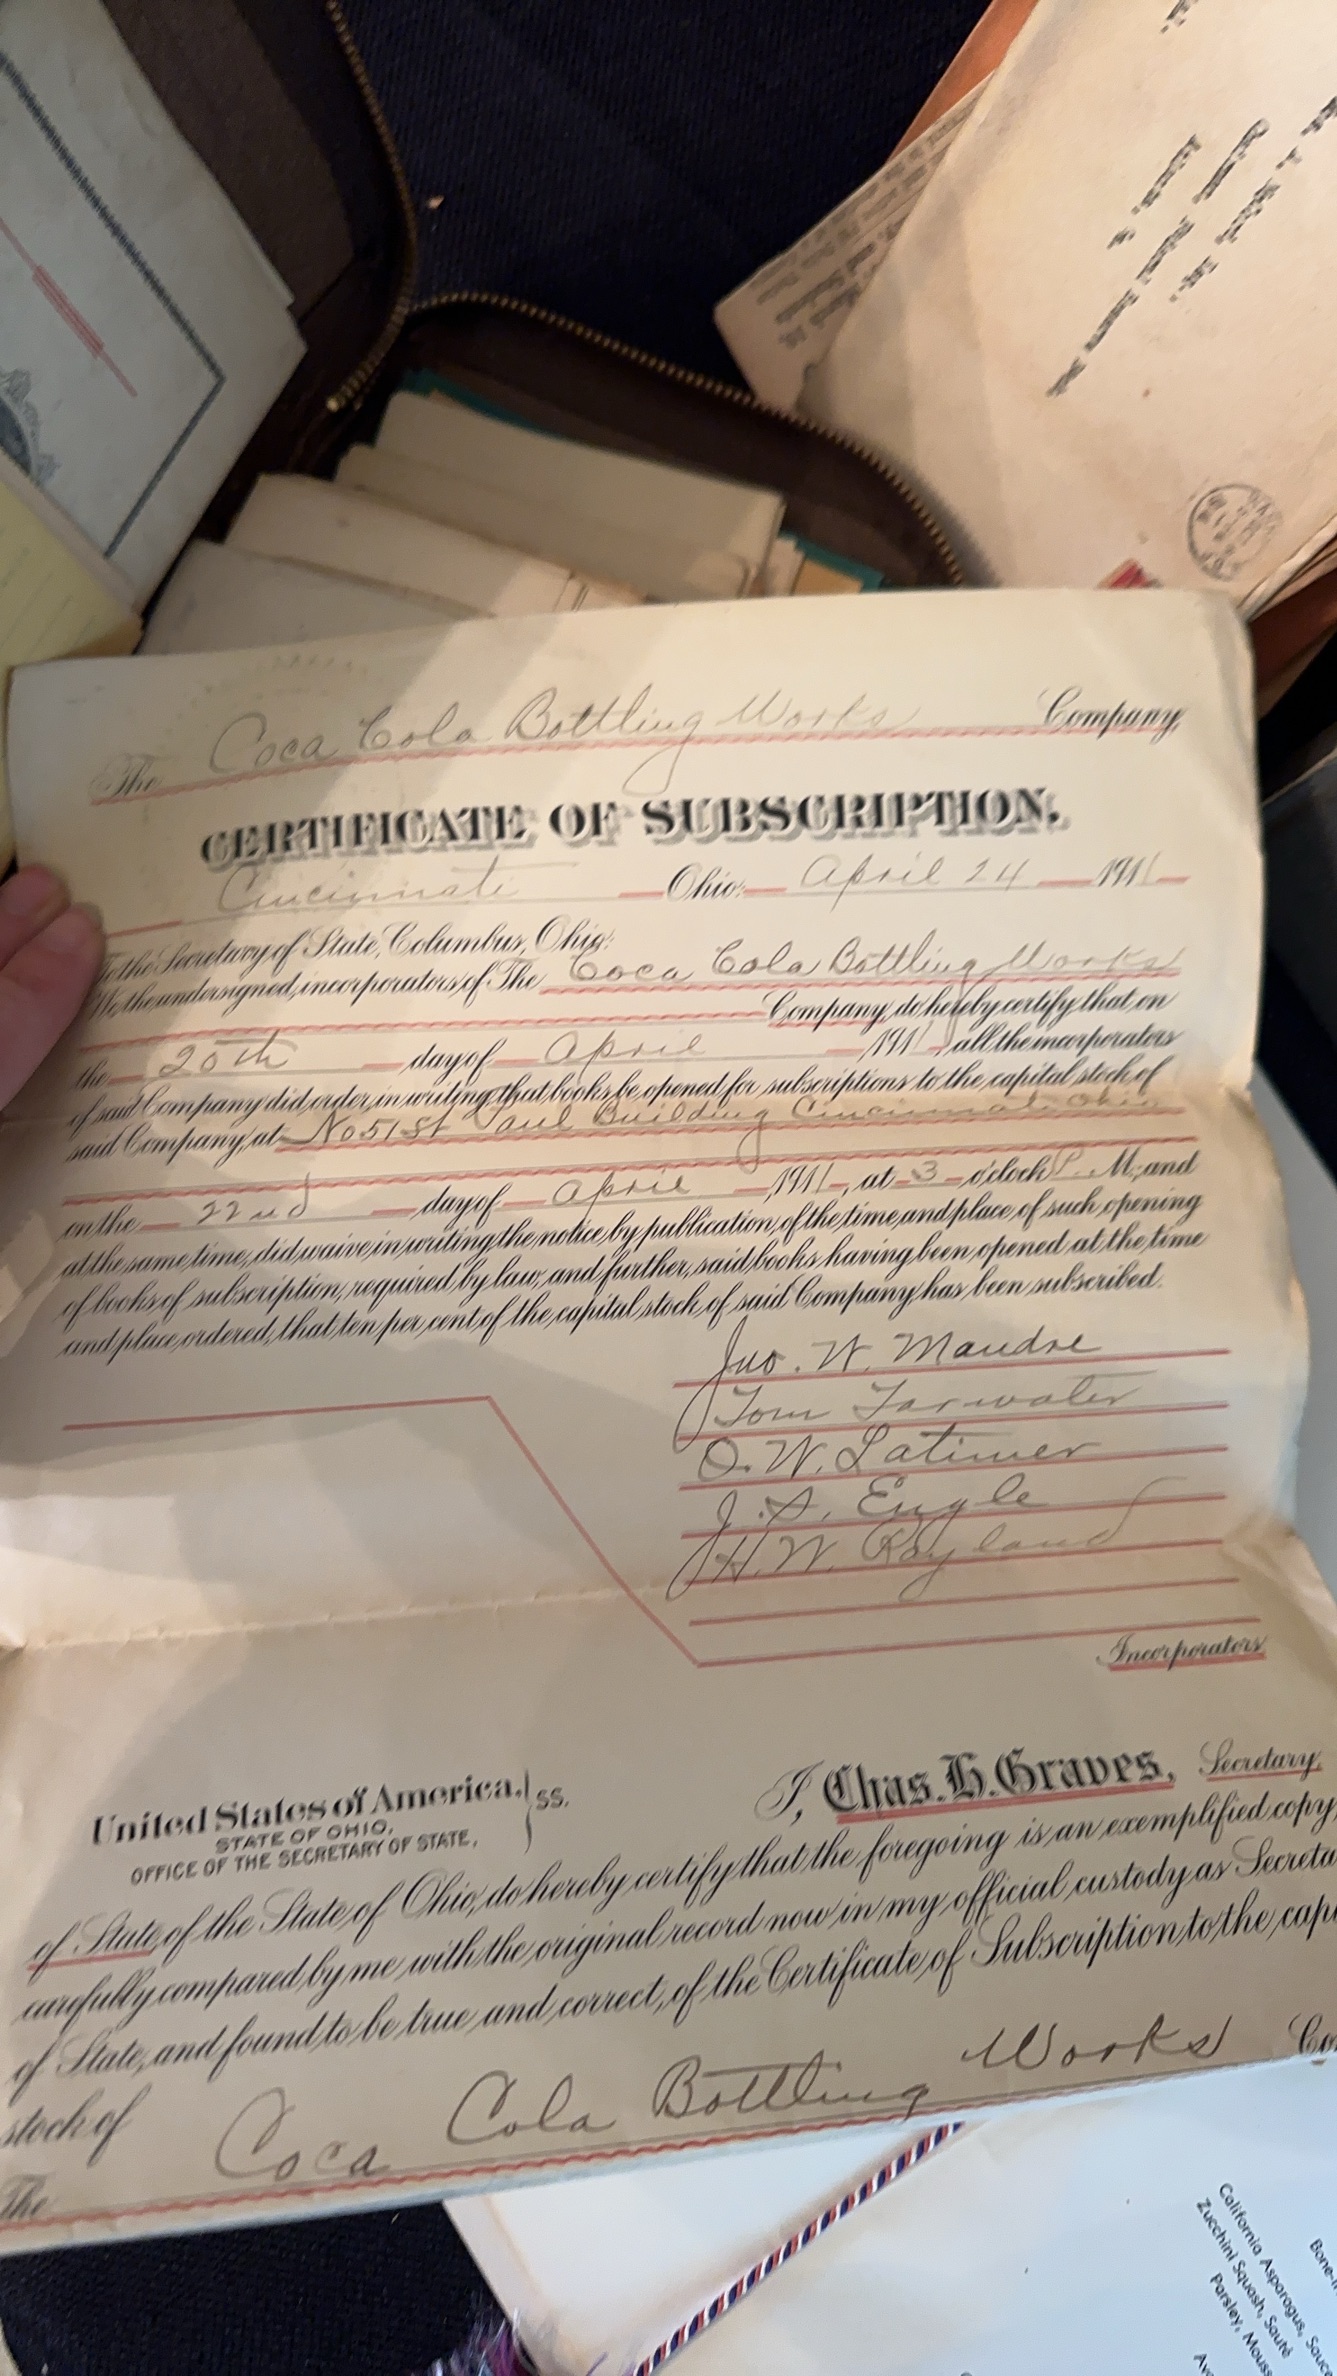 The Coca Cola Bottling Works Company,
CERTIFICATE OF SUBSCRIPTION.
Cincinnati Ohio: April 24 1911
To the Secretary of State, Columbus, Ohio:
We, the undersigned, incorporators of The Coca Cola Bottling Works
Company, do hereby certify that on
the 20th day of April 1911, all the incorporators
of said Company did order, in writing, that books be opened for subscriptions to the capital stock of
said Company, at No 51 St Paul Building Cincinnati Ohio
on the 22nd day of April 1911, at 3 o'clock P. M.; and
at the same time, did waive in writing the notice by publication, of the time and place of such opening
of books of subscription, required by law, and further, said books having been opened at the time
and place ordered, that ten per cent of the capital stock of said Company has been subscribed.
Jno. W. Maudre
Tom Tarwater
O. W. Latimer
J. S. Engle
H. W. Rayland
Incorporators
United States of America, } SS.
STATE OF OHIO,
OFFICE OF THE SECRETARY OF STATE,
I, Chas. H. Graves, Secretary
of State, of the State of Ohio, do hereby certify that the foregoing is an exemplified copy,
carefully compared by me with the original record now in my official custody as Secreta
of State, and found to be true and correct, of the Certificate of Subscription to the, capi
stock of
The Coca Cola Bottling Works Co
California Asparagus, Sauc
Zucchini Squash, Sauté
Parsley, Mouss
Bone-i